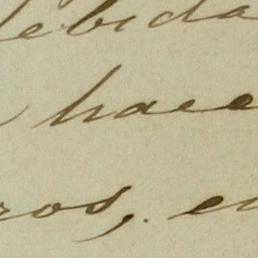 debida
hace
ros, en